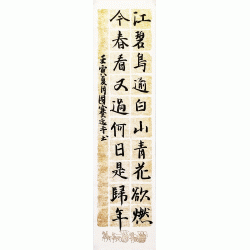 江碧鳥逾白山青花欲燃
今春看又過何日是歸年
壬寅夏月